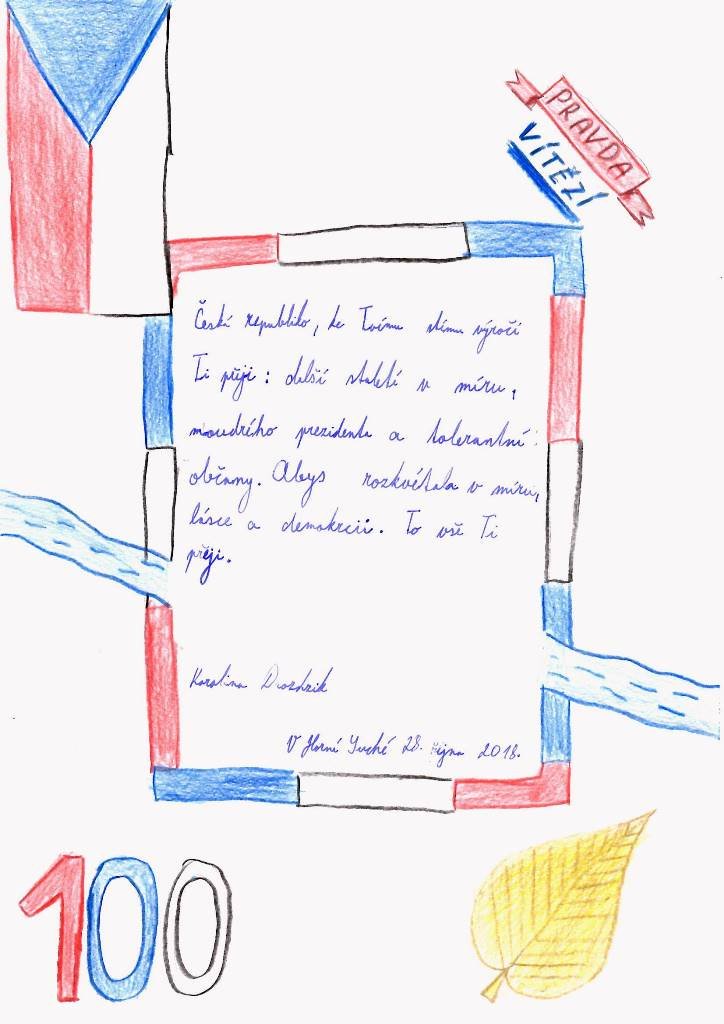 PRAVDA
VÍTĚZÍ
Česká republiko, ke Tvému stému výročí
Ti přeji: další staletí v míru,
moudrého prezidenta a tolerantní
občany. Abys rozkvétala v míru,
lásce a demokracii. To vše Ti
přeji.
Karolina Drozdzik
V Horní Suché 28. října 2018.
100